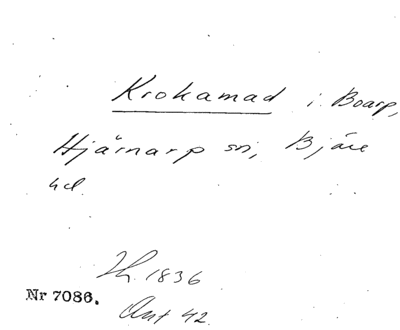 Krokamad i Boarp,
Hjärnarp sn, Bjäre
hd.
Th. 1836
Nr 7086.
Ant 42.